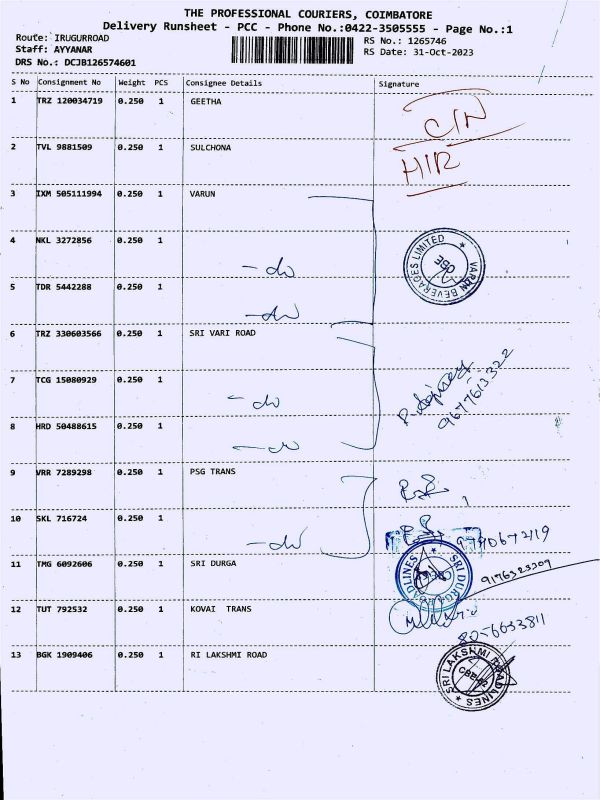 THE PROFESSIONAL COURIERS, COIMBATORE
Delivery Runsheet - PCC - Phone No.:0422-3505555 - Page No.:1
Route: IRUGURROAD
RS No.: 1265746
Staff: AYYANAR
RS Date: 31-Oct-2023
DRS No.: DCJB126574601
S No Consignment No Weight PCS Consignee Details Signature
1 TRZ 120034719 0.250 1 GEETHA
2 TVL 9881509 0.250 1 SULCHONA
3 IXM 505111994 0.250 1 VARUN
4 NKL 3272856 0.250 1
VARUN BEVERAGES LIMITED
- do
5 TDR 5442288 0.250 1
- do
6 TRZ 330603566 0.250 1 SRI VARI ROAD
7 TCG 15080929 0.250 1
- do
9677613322
8 HRD 50488615 0.250 1
- do
9 VRR 7289298 0.250 1 PSG TRANS
10 SKL 716724 0.250 1
- do
11 TMG 6092606 0.250 1 SRI DURGA
SRI DURGA ROADLINES
9176323309
12 TUT 792532 0.250 1 KOVAI TRANS
80-6633811
13 BGK 1909406 0.250 1 RI LAKSHMI ROAD
SRI LAKSHMI ROADLINES